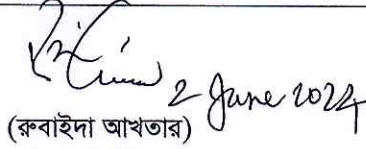 2 June 2024
(রুবাইদা আখতার)